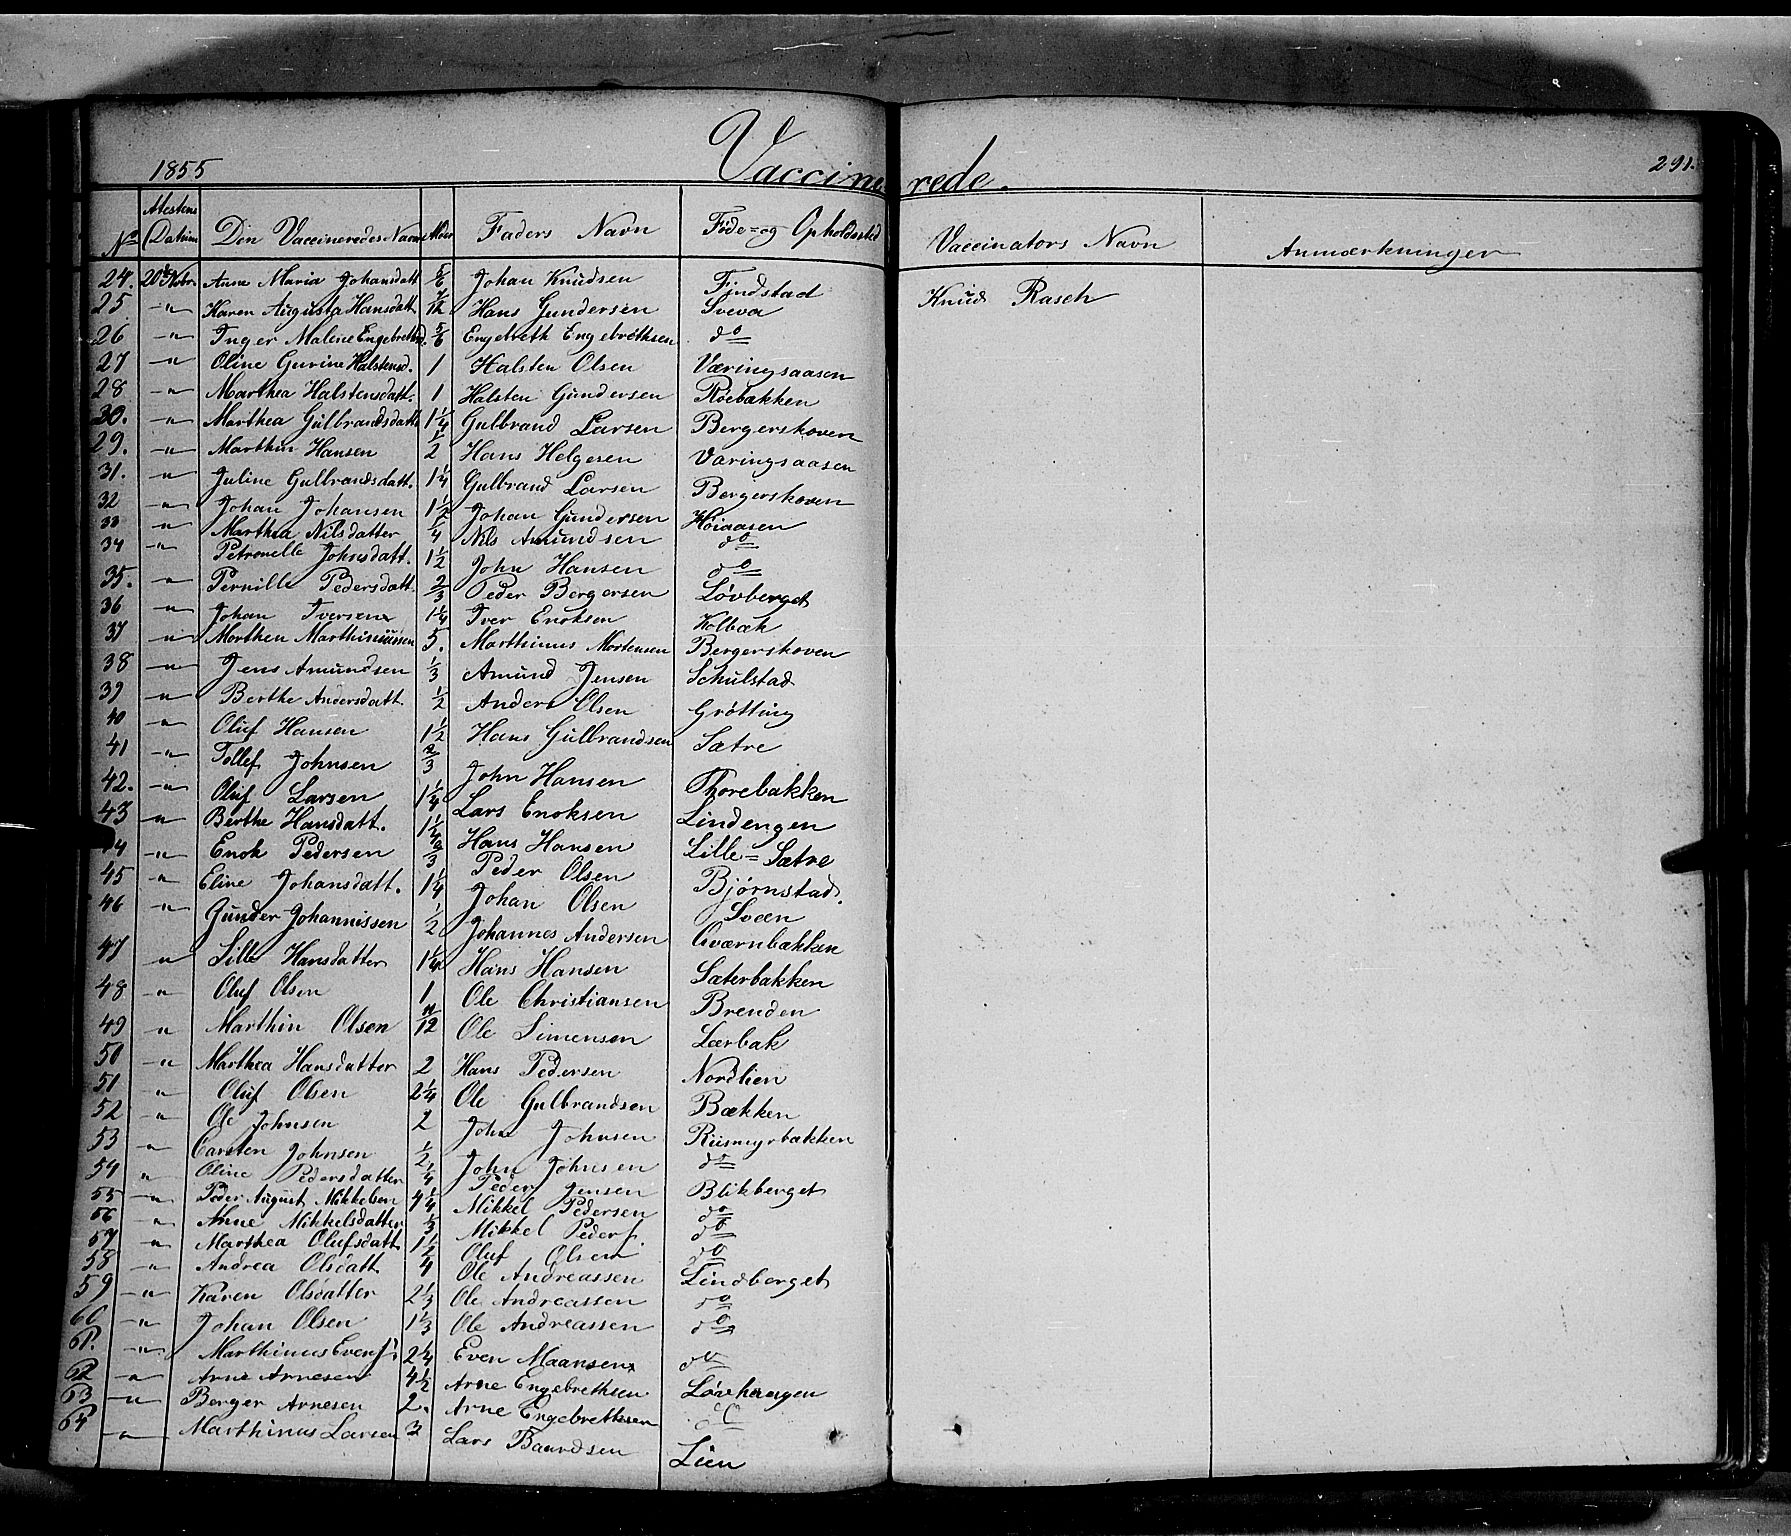 1855 Vaccinerede. 291.
No Attestens Datum Den Vaccineredes Navn Alder Faders Navn Føde- og Opholdssted Vaccinators Navn Anmærkninger
24. 20de Novbr. Anne Maria Johansdatt 5/6 Johan Knudsen Findstad Knud Rasch
25 -"- Karen Augusta Hansdatt 7/12 Hans Gundersen Sveva
26 -"- Inger Malene Engebrethsd. 5/6 Engebreth Engebrethsen do
27 -"- Oline Gurine Halstensd. 1 Halsten Olsen Væringsaasen
28 -"- Marthea Halstensdatt. 1 Halsten Gundersen Roebakken
30. -"- Marthea Gulbrandsdatt 1 1/4 Gulbrand Larsen Bergerskoven
29. -"- Marthin Hansen 1/2 Hans Helgesen Varingsaasen
31. -"- Juline Gulbrandsdatt. 1 1/4 Gulbrand Larsen Bergerskoven
32 -"- Johan Johansen 1 1/2 Johan Gundersen Høiaasen
33 -"- Marthea Nilsdatter 1/4 Nils Amundsen do
34 -"- Petronelle Johnsdatt. 1 1/2 John Hansen do
35. -"- Pernille Pedersdatt. 2/3 Peder Bergersen Løvberget
36 -"- Johan Iversen 1 1/4 Iver Enoksen Kolbæk
37 -"- Morthen Marthinussen 5. Marthinus Mortensen Bergerskoven
38 -"- Jens Amundsen 1/3 Amund Jensen Schulstad
39 -"- Berthe Andersdatt. 1/2 Anders Olsen Grøtting
40 -"- Oluf Hansen 1 1/2 Hans Gulbrandsen Sætre
41 -"- Tollef Johnsen 2/3 John Hansen Thorebakken
42. -"- Oluf Larsen 1 1/4 Lars Enoksen Lindengen
43 -"- Berthe Hansdatt. 1 1/4 Hans Hansen Lille-Sætre
44 -"- Enok Pedersen 2/3 Peder Olsen Bjørnstad.
45 -"- Eline Johansdatt. 1 1/4 Johan Olsen Sveen
46 -"- Gunder Johannissen 1/2 Johannes Andersen Qværnbækken
47 -"- Lille Hansdatter 1 1/4 Hans Hansen Sæterbakken
48 -"- Oluf Olsen 1 Ole Christiansen Brenden
49 -"- Marthin Olsen 11/12 Ole Simensen Lærbak
50 -"- Marthea Hansdatter 2 Hans Pedersen Nordlien
51 -"- Oluf Olsen 2 1/4 Ole Gulbrandsen Bækken
52 -"- Ole Johnsen 2 John Johnsen Riismyrbakken
53 -"- Carsten Johnsen 1/2 John Johnsen do
54 -"- Oline Pedersdatter 1/4 Peder Jensen Blikberget
55 -"- Peder August Mikkelsen 4 1/4 Mikkel Pedersen do
56 -"- Anne Mikkelsdatter 1/3 Mikkel Peders. do
57 -"- Marthea Olufsdatt 1 1/2 Oluf Olsen do
58 -"- Andrea Olsdatt 4 Ole Andreassen Lindberget
59 -"- Karen Olsdatter 2 1/3 Ole Andreassen do
60 -"- Johan Olsen 1 1/3 Ole Andreassen do
61. -"- Marthinus Evens. 2 1/4 Even Maansen do
62 -"- Arne Arnesen 4 1/2 Arne Engebrethsen Løvhaugen
63 -"- Berger Arnesen 2. Arne Engebrethsen do
64 -"- Marthinus Larsen 3 Lars Baardsen Lien